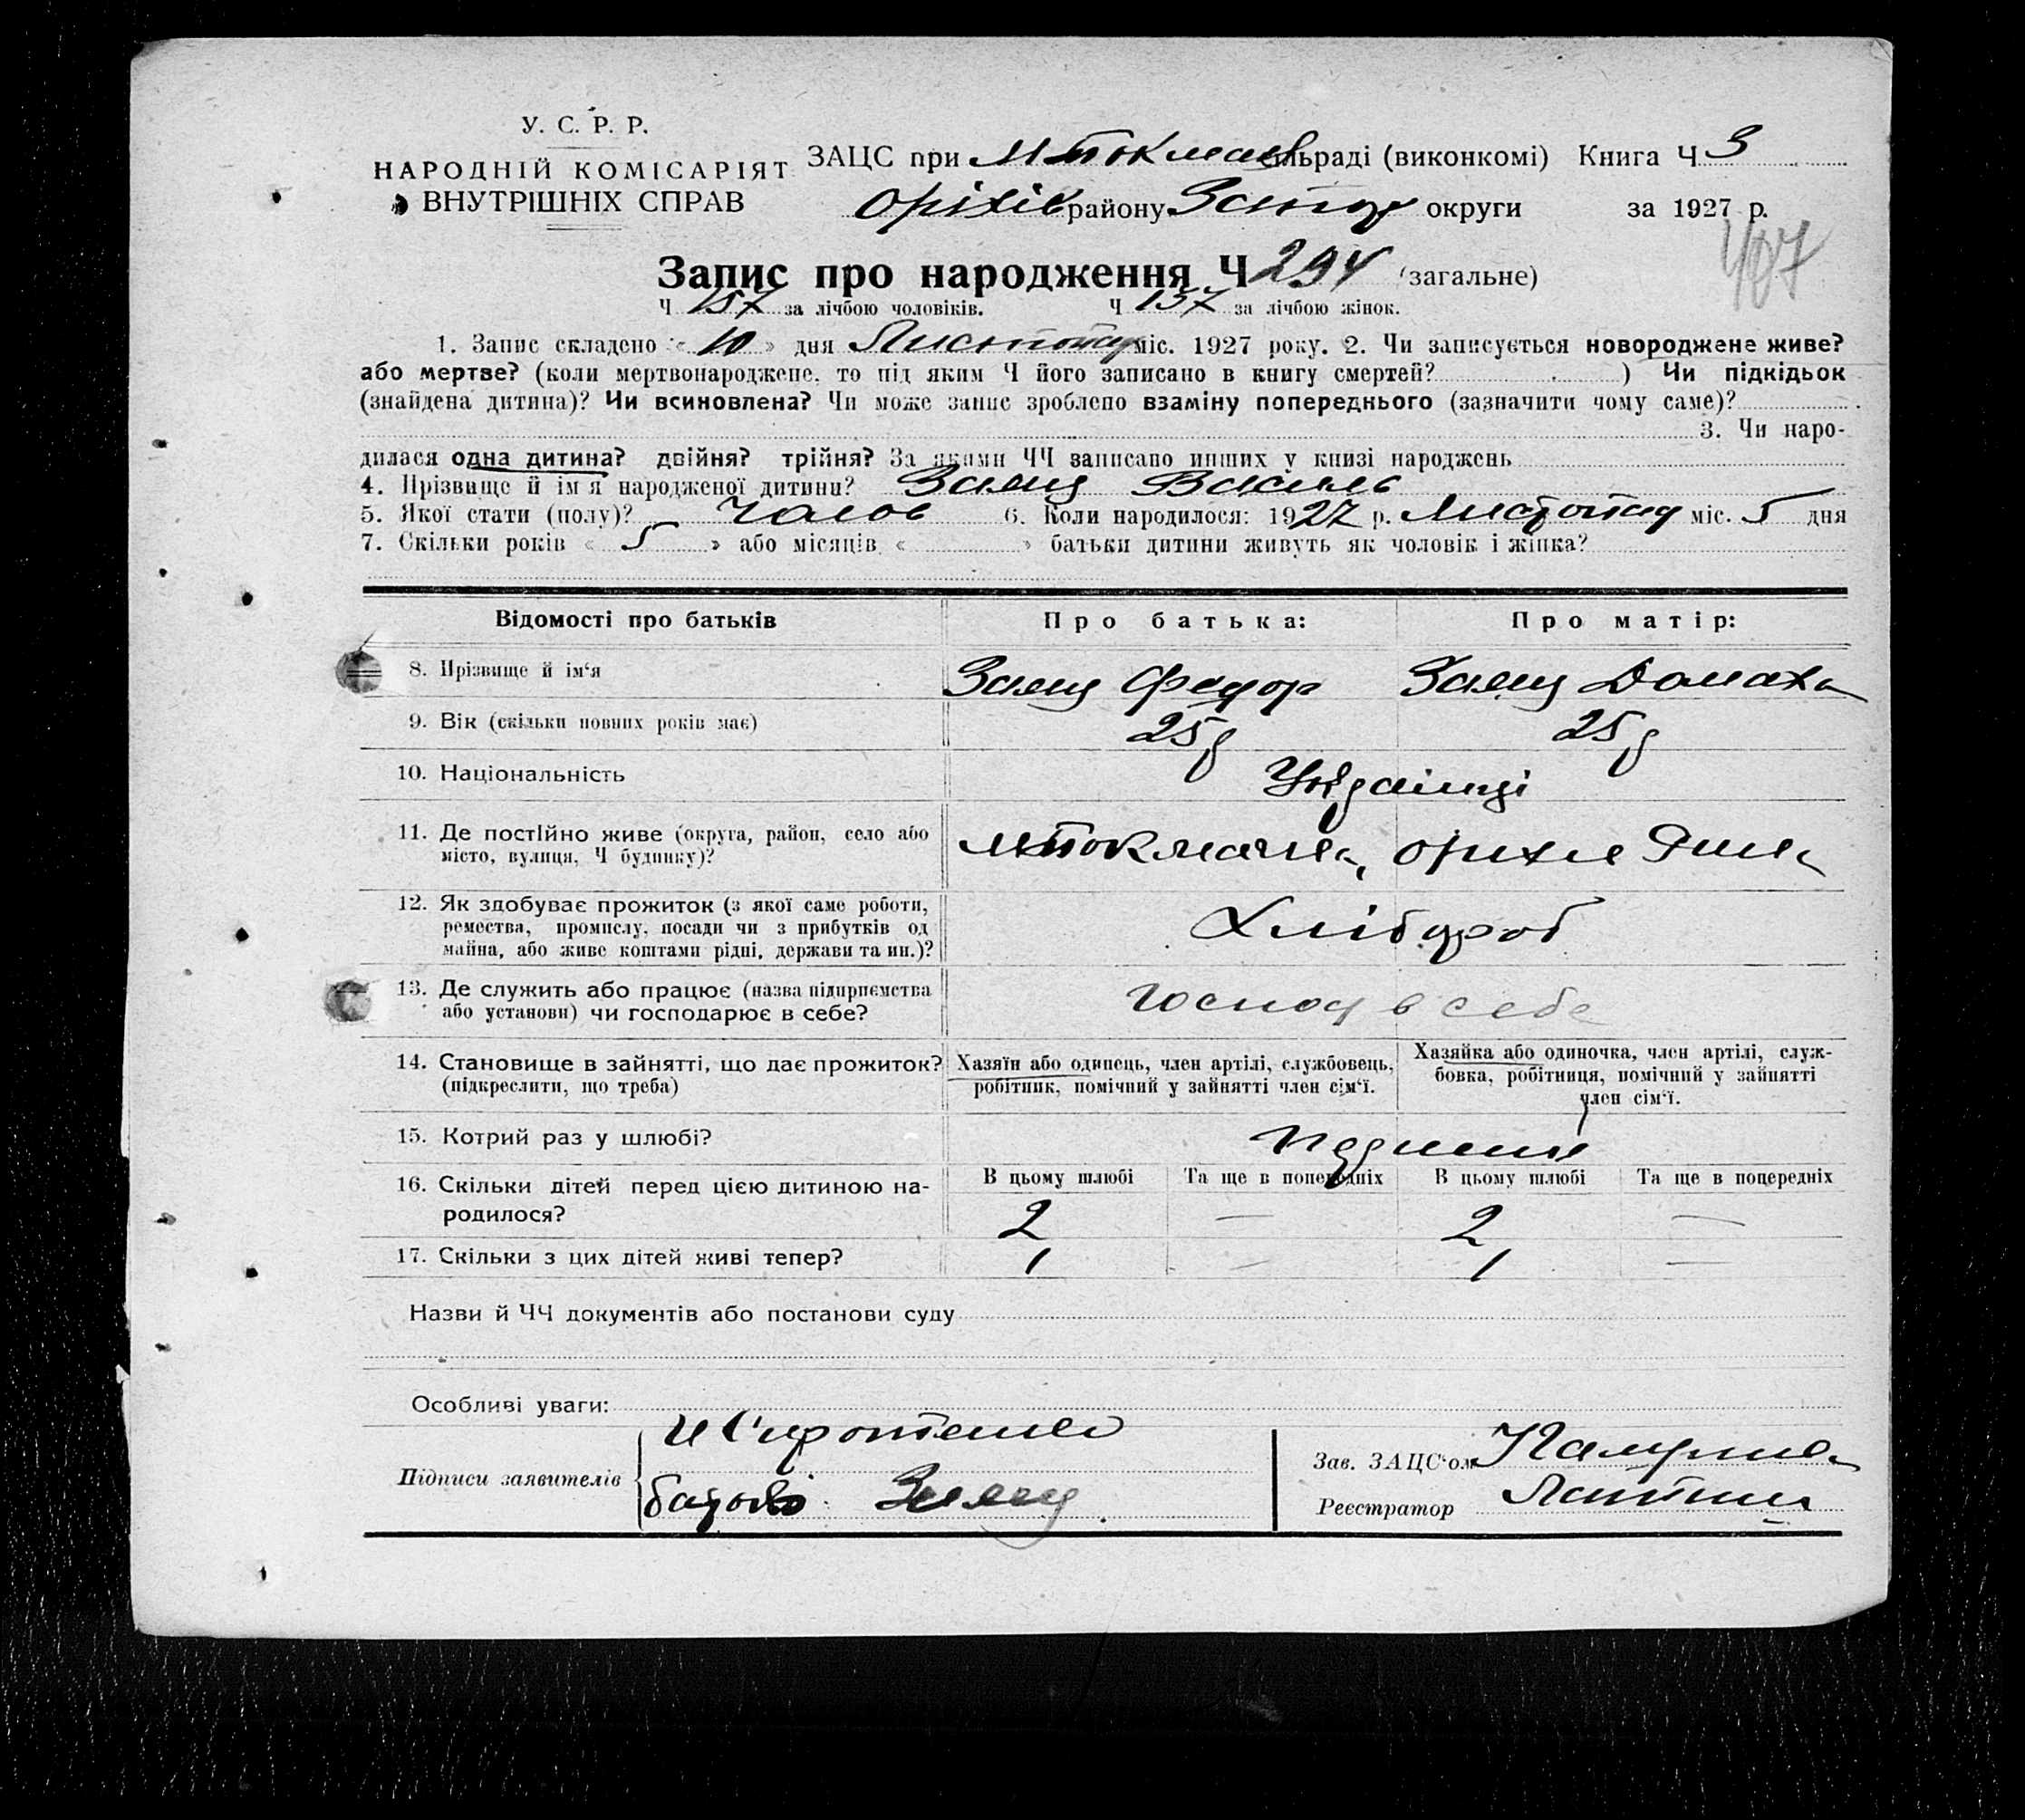 У. С. Р. Р.
НАРОДНІЙ КОМІСАРІЯТ
ВНУТРІШНІХ СПРАВ
ЗАЦС при М Токмач сільраді (виконкомі) Книга Ч 3
Оріхів району Запор округи за 1927 р.
407
Запис про народження Ч 294 (загальне)
Ч 157 за лічбою чоловіків. Ч 137 за лічбою жінок.
1. Запис складено « 10 » дня Листопад міс. 1927 року. 2. Чи записується новороджене живе?
або мертве? (коли мертвонароджене, то під яким Ч його записано в книгу смертей? ) Чи підкідьок
(знайдена дитина)? Чи всиновлена? Чи може запис зроблено взаміну попереднього (зазначити чому саме)?
3. Чи наро-
дилася одна дитина? двійня? трійня? За якими ЧЧ записано инших у книзі народжень
4. Прізвище й ім'я народженої дитини? Заяць Василь
5. Якої стати (полу)? Чолов 6. Коли народилося: 1927 р. Листопад міс. 5 дня
7. Скільки років « 5 » або місяців « » батьки дитини живуть як чоловік і жінка?
Відомості про батьків Про батька: Про матір:
8. Прізвище й ім'я Заяць Федор Заяць Домаха
9. Вік (скільки повних років має) 25 р 25 р
10. Національність Українці
11. Де постійно живе (округа, район, село або
місто, вулиця, Ч будинку)?
М Токмачка,
12. Як здобуває прожиток (з якої саме роботи,
ремества, промислу, посади чи з прибутків од
майна, або живе коштами рідні, держави та ин.)?
Хлібороб
13. Де служить або працює (назва підприємства
або установи) чи господарює в себе?
Господ в себе
14. Становище в зайнятті, що дає прожиток?
(підкреслити, що треба)
Хазяїн або одинець, член артілі, службовець,
робітник, помічний у зайнятті член сім'ї.
Хазяйка або одиночка, член артілі, служ-
бовка, робітниця, помічний у зайнятті
член сім'ї.
15. Котрий раз у шлюбі?
16. Скільки дітей перед цією дитиною на-
родилося?
В цьому шлюбі Та ще в попередніх В цьому шлюбі Та ще в попередніх
2 — 2 —
17. Скільки з цих дітей живі тепер? 1 — 1 —
Назви й ЧЧ документів або постанови суду
Особливі уваги:
Підписи заявителів
Заяць
Зав. ЗАЦС'ом
Реєстратор